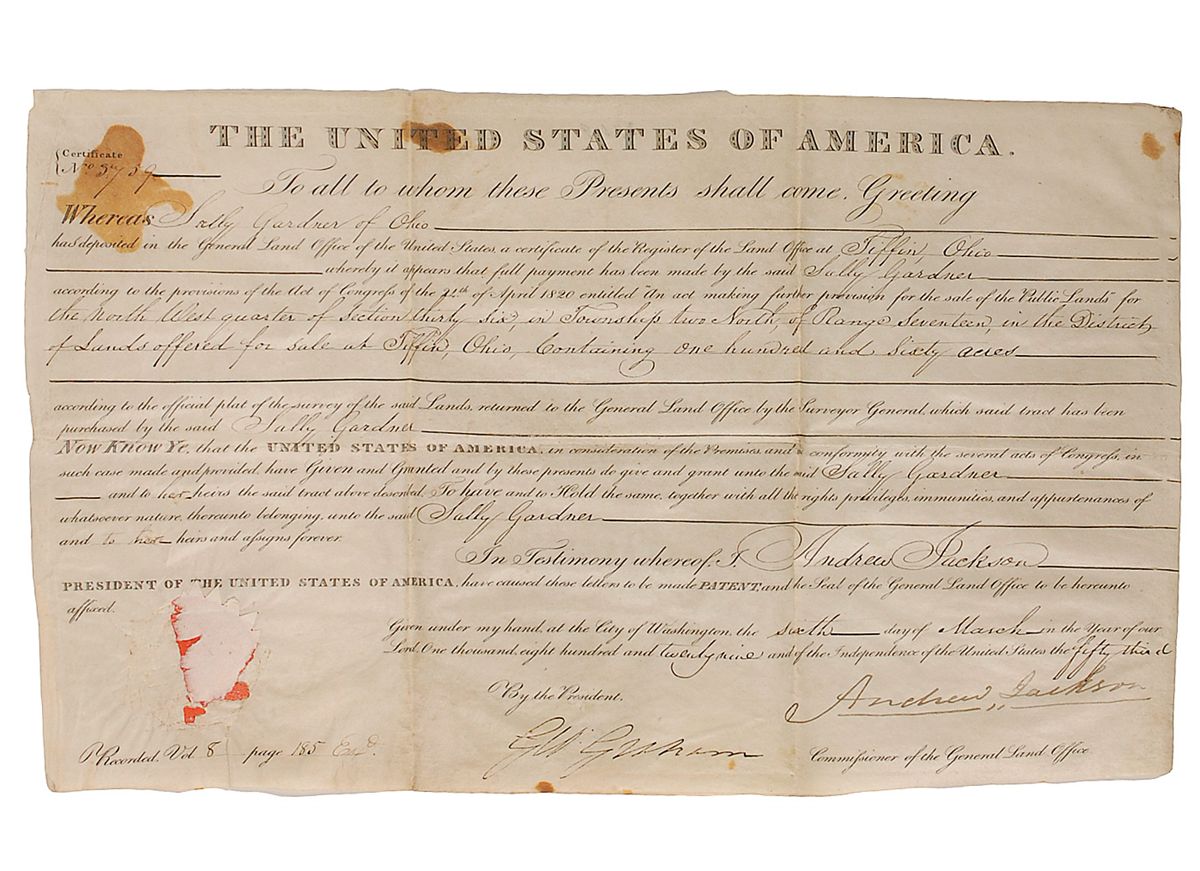 THE UNITED STATES OF AMERICA.
Certificate
No. 3759
To all to whom these Presents shall come, Greeting
Whereas Sally Gardner of Ohio
has deposited in the General Land Office of the United States, a certificate of the Register of the Land Office at Tiffin, Ohio
whereby it appears that full payment has been made by the said Sally Gardner
according to the provisions of the Act of Congress of the 24th of April 1820 entitled "An act making further provision for the sale of the Public Lands" for
the North West quarter of Section thirty six, in Township two North, of Range Seventeen, in the District
of Lands offered for sale at Tiffin, Ohio, Containing one hundred and sixty acres
according to the official plat of the survey of the said Lands, returned to the General Land Office by the Surveyor General, which said tract has been
purchased by the said Sally Gardner
Now Know Ye, that the UNITED STATES OF AMERICA, in consideration of the Premises and in conformity with the several acts of Congress, in
such case made and provided, have Given and Granted and by these presents do give and grant unto the said Sally Gardner
and to her heirs the said tract above described, To have and to Hold the same, together with all the rights privileges, immunities, and appurtenances of
whatsoever nature, thereunto belonging, unto the said Sally Gardner
and to her heirs and assigns forever.
In Testimony whereof, I, Andrew Jackson
PRESIDENT OF THE UNITED STATES OF AMERICA, have caused these letters to be made PATENT, and the Seal of the General Land Office to be hereunto
affixed.
Given under my hand, at the City of Washington, the sixth day of March in the Year of our
Lord, One thousand, eight hundred and twenty nine and of the Independence of the United States the fifty third
By the President, Andrew Jackson
Recorded, Vol 8 page 185 Exd. GW Graham Commissioner of the General Land Office